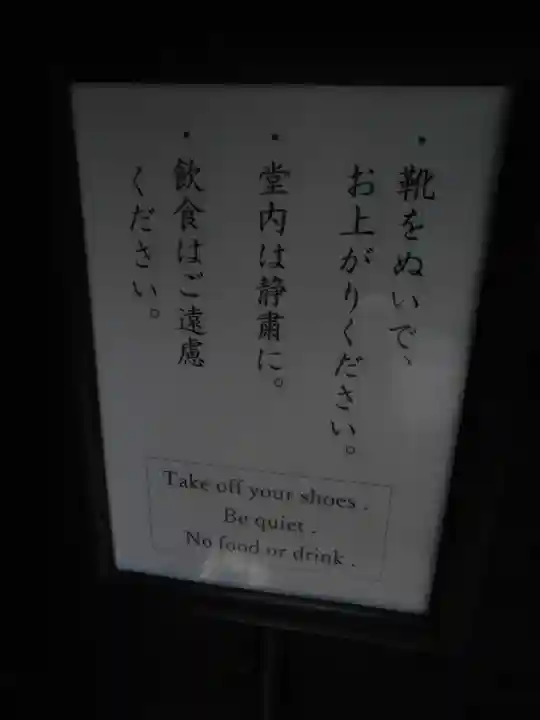 ・靴をぬいで、
お上がりください。
・堂内は静粛に。
・飲食はご遠慮
ください。
Take off your shoes .
Be quiet .
No food or drink .